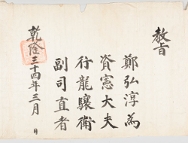 敎旨
鄭弘淳為
資憲大夫
行龍驤衛
副司直者
乾隆三十四年三月 日